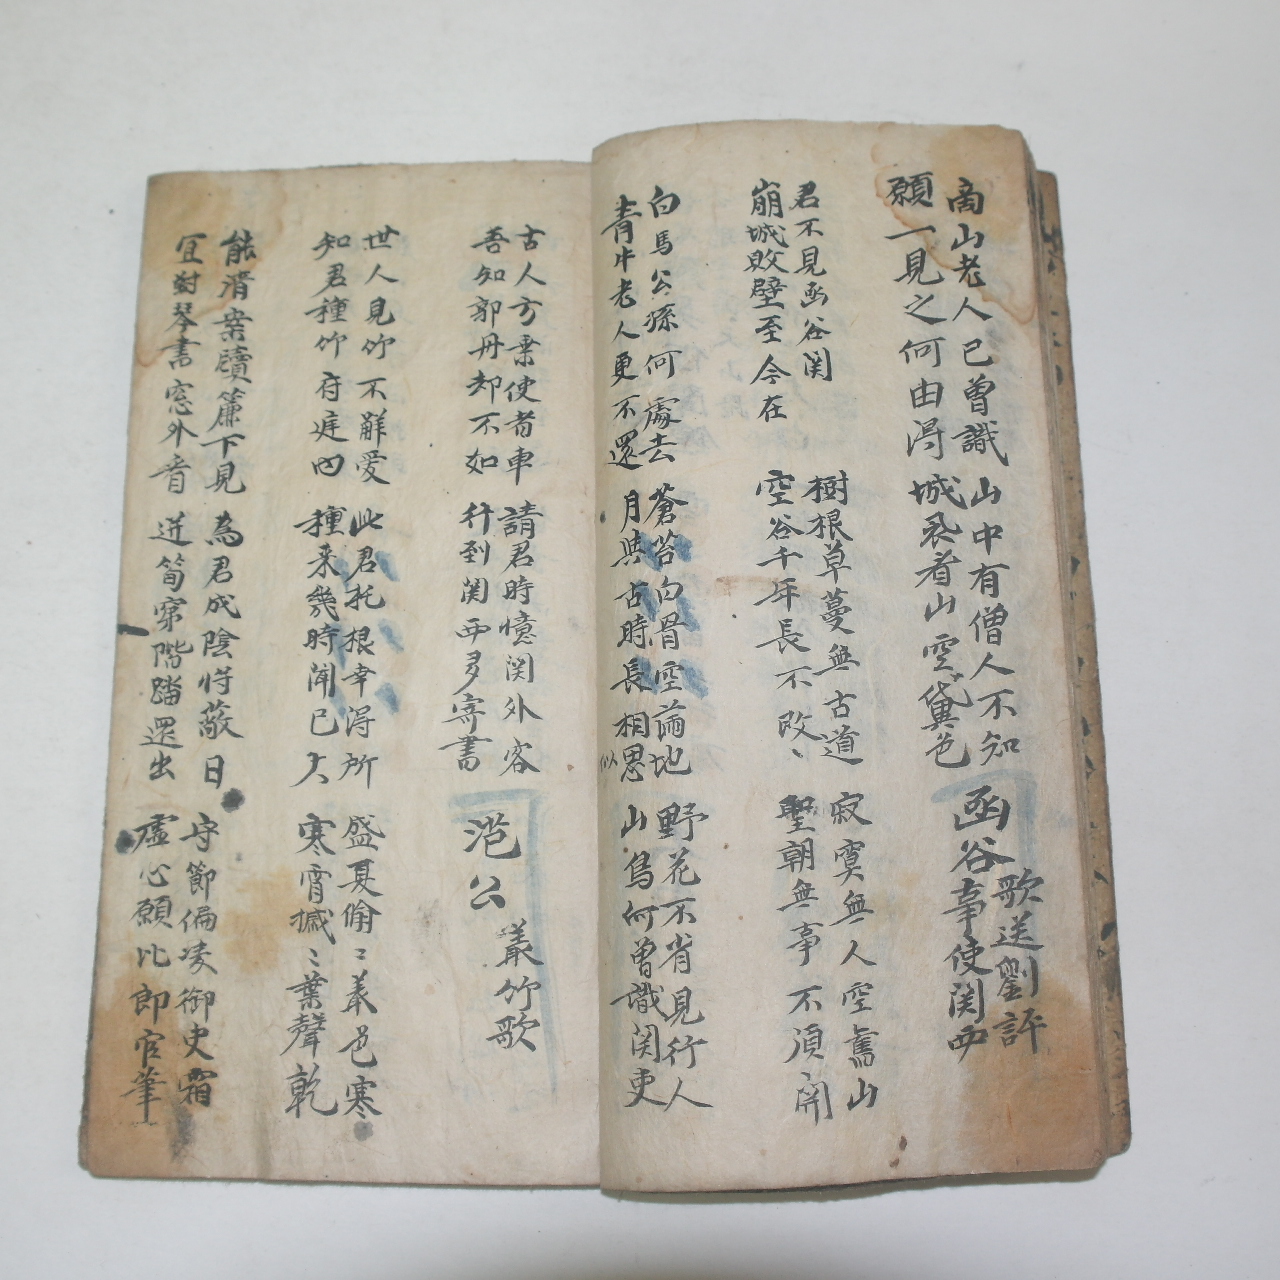 商山老人已曾識
願一見之何由得
山中有僧人不知
城裏看山空黛色
函谷歌送劉評
事使関西
君不見函谷関
崩城敗壁至今在
樹根草蔓無古道
空谷千年長不改
寂寞無人空舊山
聖朝無事不須開
白馬公孫何處去
青牛老人更不還
蒼苔白骨空滿地
月與古時長相思似
野花不省見行人
山鳥何曾識関吏
古人方乗使者車
吾知郭丹却不如
請君時憶関外客
行到関西多寄書
范公叢竹歌
世人見竹不解愛
知君種竹府庭內
此君托根幸得所
種来幾時聞已大
盛夏翛〻叢色寒
寒宵摵〻葉聲乾
能清案牘簾下見
宜對琴書窓外看
為君成陰将蔽日
迸筍穿階踏還出
守節偏凌御史霜
虛心願比郎官筆